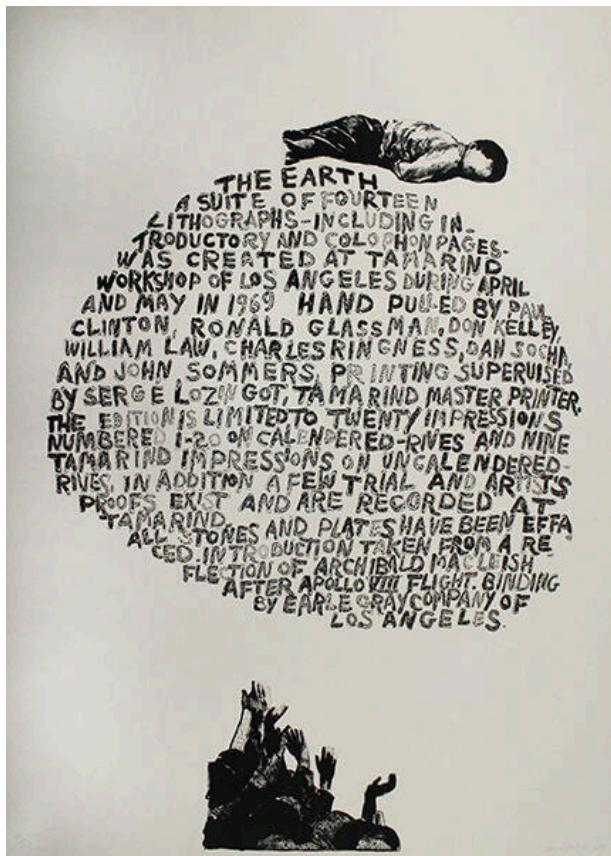 THE EARTH
A SUITE OF FOURTEEN
LITHOGRAPHS-INCLUDING IN-
TRODUCTORY AND COLOPHON PAGES-
WAS CREATED AT TAMARIND
WORKSHOP OF LOS ANGELES DURING APRIL
AND MAY IN 1969 HAND PULLED BY PAUL
CLINTON, RONALD GLASSMAN, DON KELLEY,
WILLIAM LAW, CHARLES RINGNESS, DAN SOCHA,
AND JOHN SOMMERS, PRINTING SUPERVISED
BY SERGE LOZINGOT, TAMARIND MASTER PRINTER.
THE EDITION IS LIMITED TO TWENTY IMPRESSIONS
NUMBERED 1-20 ON CALENDERED-RIVES AND NINE
TAMARIND IMPRESSIONS ON UNCALENDERED-
RIVES, IN ADDITION A FEW TRIAL AND ARTISTS
PROOFS EXIST AND ARE RECORDED AT
TAMARIND.
ALL STONES AND PLATES HAVE BEEN EFFA
CED. INTRODUCTION TAKEN FROM A RE
FLECTION OF ARCHIBALD MACLEISH
AFTER APOLLO VIII FLIGHT. BINDING
BY EARLE GRAY COMPANY OF
LOS ANGELES.